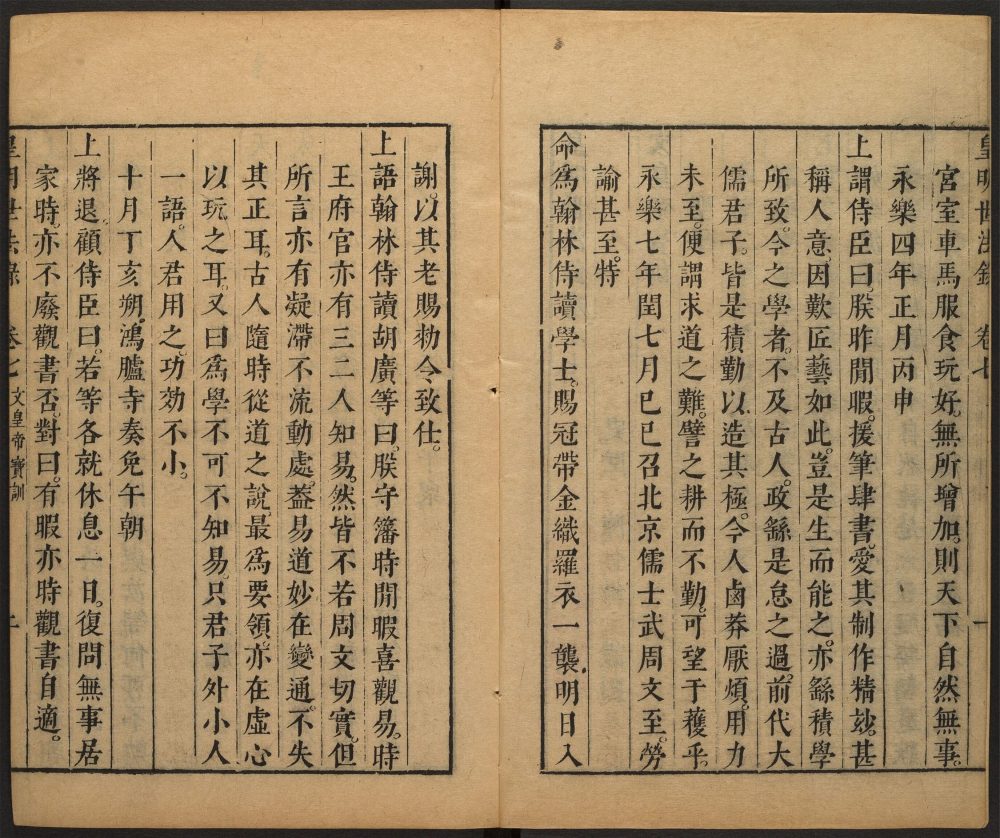 皇明世法錄 卷七
宮室車馬服食玩好。無所增加。則天下自然無事。
永樂四年正月丙申
上謂侍臣曰。朕昨閒暇。援筆肆書。愛其制作精玅。甚
稱人意。因歎匠藝如此。豈是生而能之。亦繇積學
所致。今之學者。不及古人。政繇是怠之過。前代大
儒君子。皆是積勤以造其極。今人鹵莽厭煩。用力
未至。便謂求道之難。譬之耕而不勤。可望于穫乎。
永樂七年閏七月巳巳召北京儒士武周文至。勞
諭甚至。特
命爲翰林侍讀學士。賜冠帶金織羅衣一襲。明日入
謝以其老賜勑令致仕。
上語翰林侍讀胡廣等曰。朕守籓時閒暇喜觀易。時
王府官亦有三二人知易。然皆不若周文切實。但
所言亦有凝滯不流動處。葢易道妙在變通。不失
其正耳。古人隨時從道之說。最爲要領。亦在虛心
以玩之耳。又曰爲學不可不知易。只君子外小人
一語。人君用之。功効不小。
十月丁亥朔。鴻臚寺奏免午朝
上將退。顧侍臣曰。若等各就休息一日。復問無事居
家時。亦不廢觀書否。對曰。有暇亦時觀書自適。
皇明世法錄 卷七 文皇帝寶訓